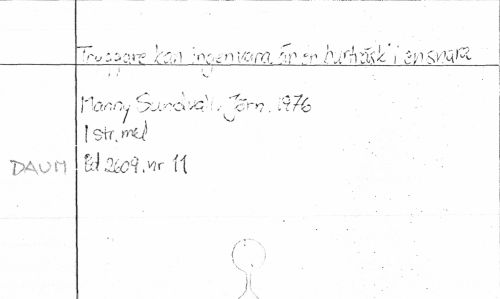 Tryggare kan ingen vara, än en burträsk i en snara
Manny Sundvall. Jörn. 1976
1 str. mel
DAUM Bd 2609. nr 11